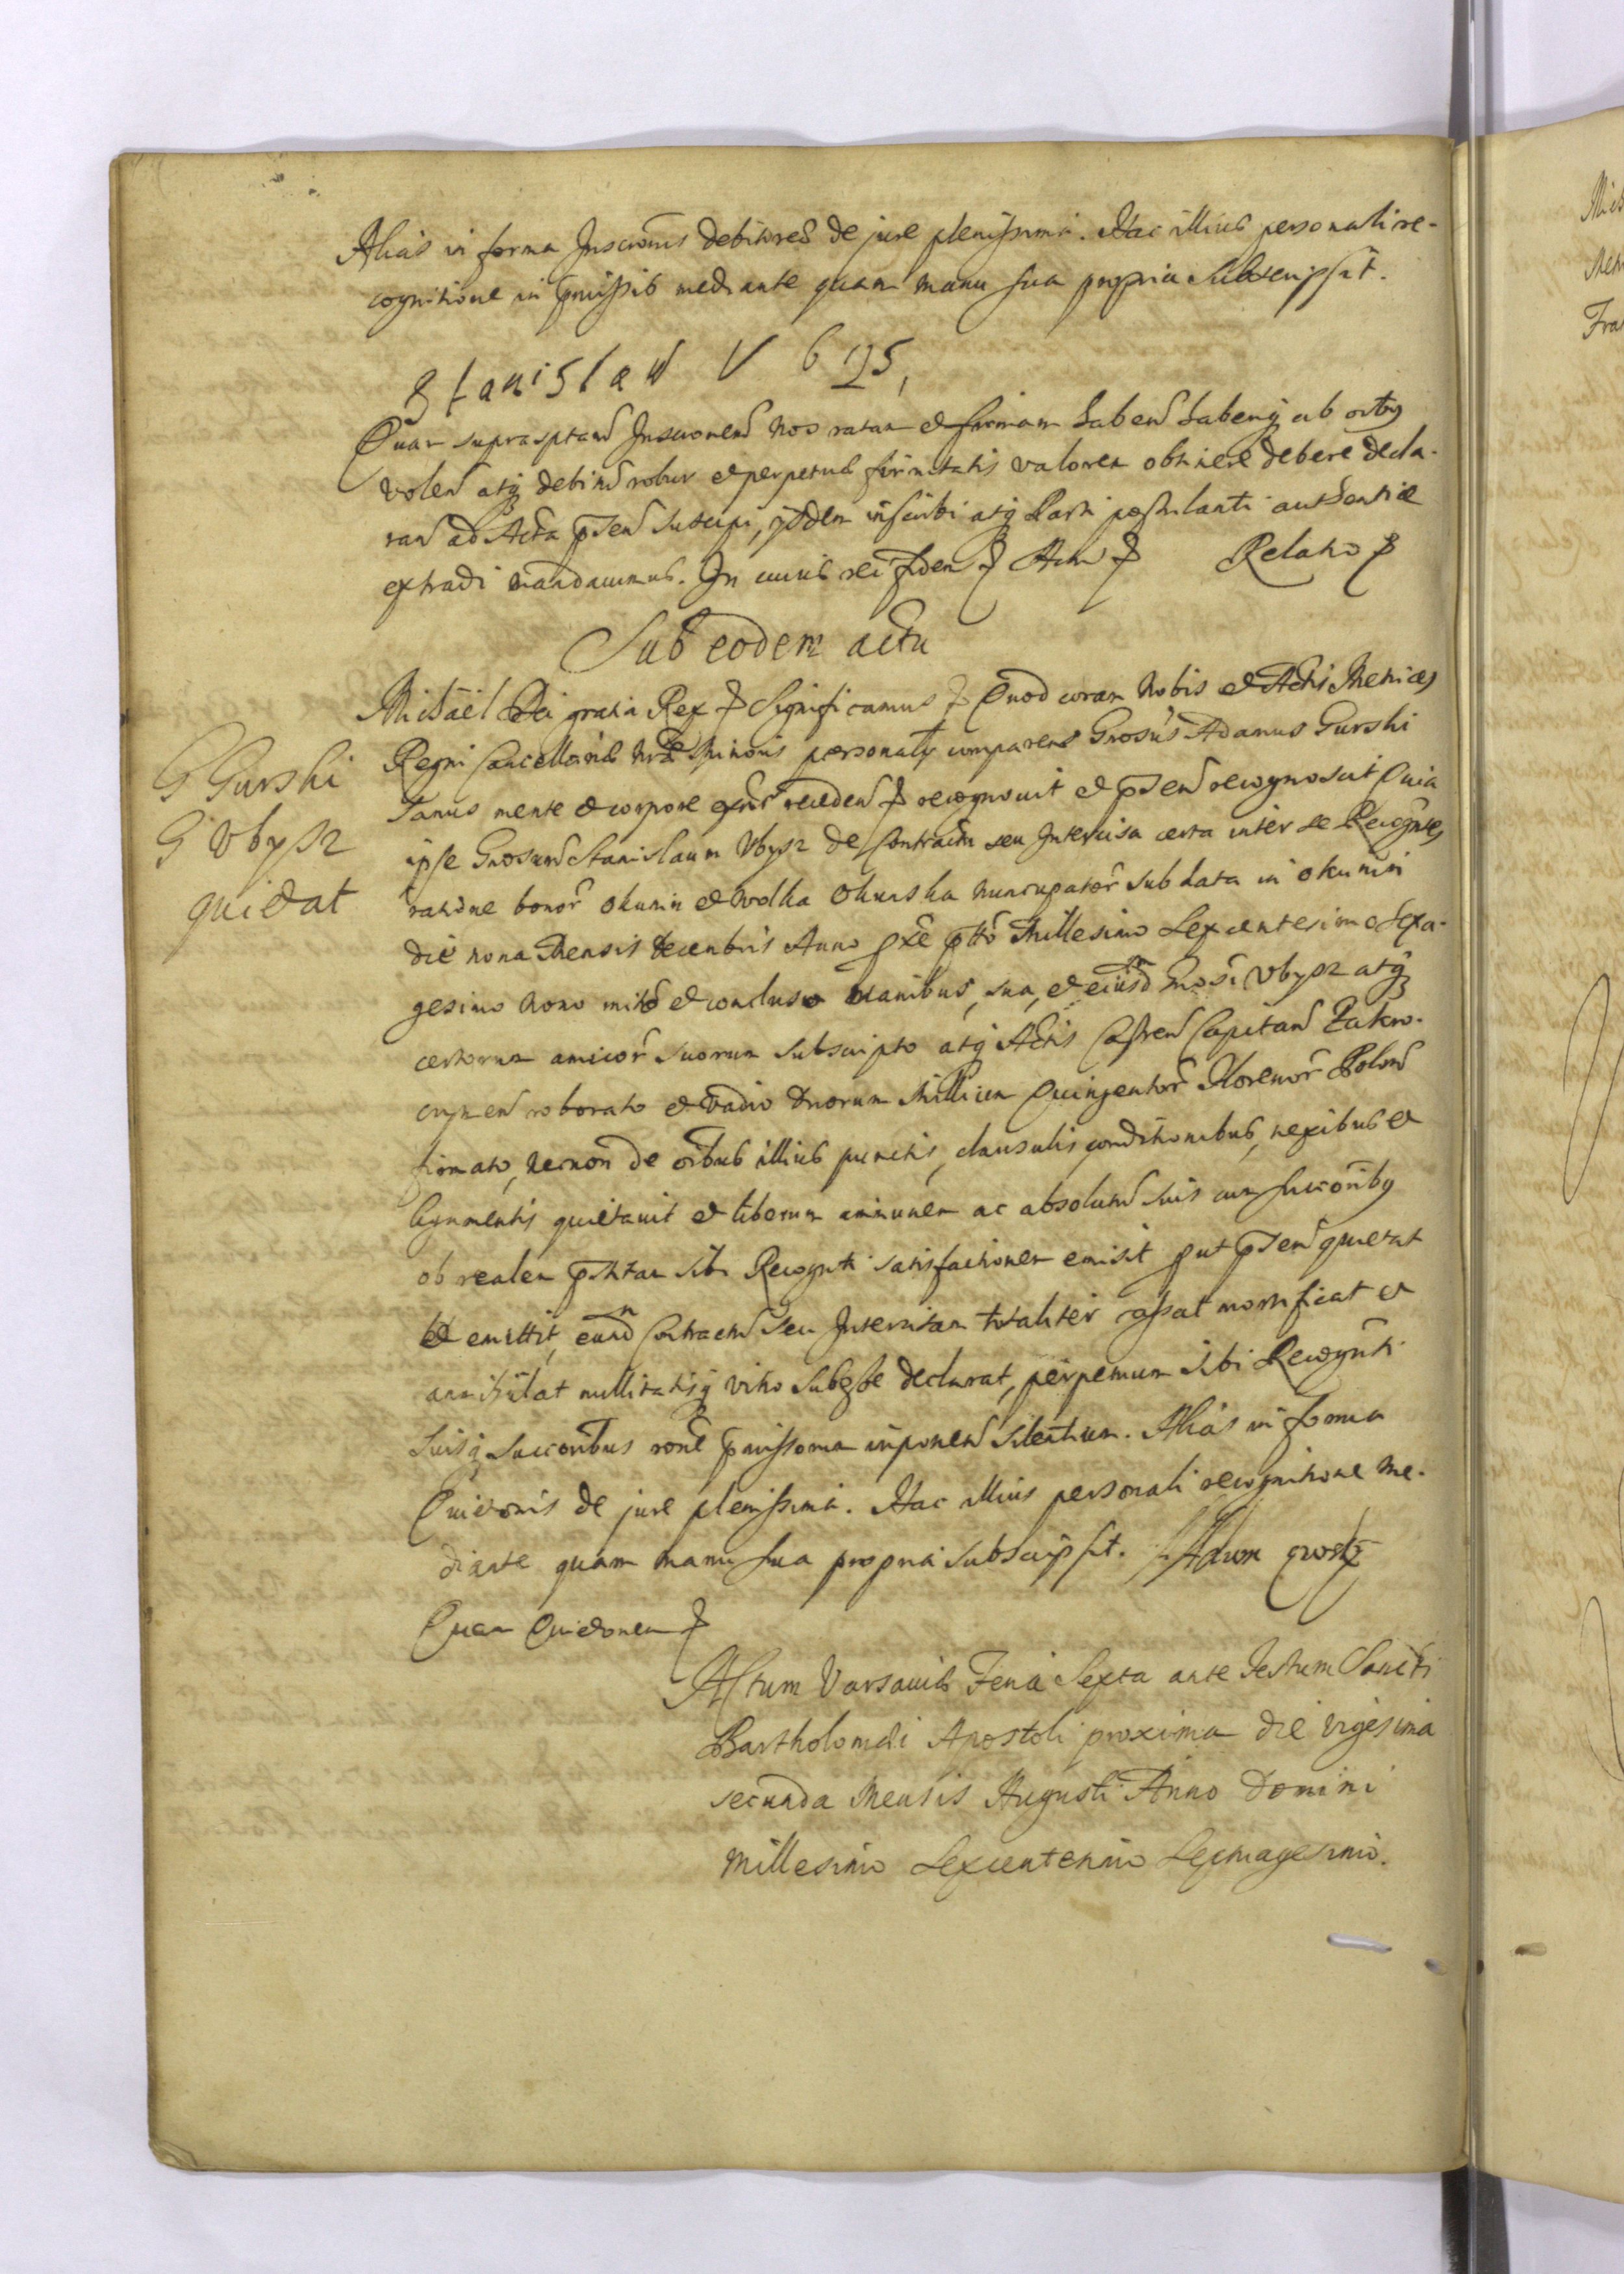 Alias in forma Inscrōnis debitores de jure plenissima. Hac illius personali re-
cognitione in p̄missis mediante quam manu sua propria subscripsit.
Stanisław Vbys
Quam suprascptam Inscrōnem Nos ratam et firmam haben haberiq ab oībq
volen atq debitū robur et perpetuæ firmitatis valorem obtinere debere decla-
ran ad Acta p̄sen suscipi, ijsdem inscribi atq Parti postulanti authentice
extradi mandavimus. In cuius rei fidem Actu Relatio
Sub eodem actu
Michäel Dei gratia Rex Significamus Quod coram Nobis et Actis Metrices
Regni Cancellariæ Nræ Minoris personalr comparens Gnosus Adamus Gurski
sanus mente et corpore exñs receden recognovit et p̄sen recognoscit Quia
ipse Gnosum Stanislaum Vbysz de Contractu seu Intercisa certa inter se Recogntes
ratione bonor Okunin et Wolka Okunska nuncupator sub data in Okunin
die nona Mensis Decembris Anno pxe p̄tto Millesimo Sexcentesimo Sexa-
gesimo Nono inito et concluso manibus, sua, et eiusdm Gnosi Vbysz atq
certorum amicor suorum subscripto atq Actis Castren Capitan Zakro-
cymen roborato et vadio duorum Millium Quingentor Florenor Polon
firmato, necnon de oībus illius punctis, clausulis, conditionibus, nexibus et
ligamentis quietavit et liberum immunem ac absolutum suis cum succōribq
ob realem p̄stitam sibi Recognti satisfactionem emisit put p̄sen quietat
et emittit, eundm Contractum seu Intercisam totaliter cassat mortificat et
annihilat nullitatisq vitio subesse declarat, perpetuum sibi Recognti
suisq succoribus rone p̄missorum imponen silentium. Alias in forma
Quietōnis de jure plenissima. Hac illius personali recognitione me-
diante quam manu sua propria subscripsit. Adam
Quam Quietōnem
G Gurski
G Vbysz
quietat
Actum Varsaviæ Feria Sexta ante Festum Sancti
Bartholomæi Apostoli proxima die vigesima
secunda Mensis Augusti Anno Domini
Millesimo Sexcentesimo Septuagesimo.